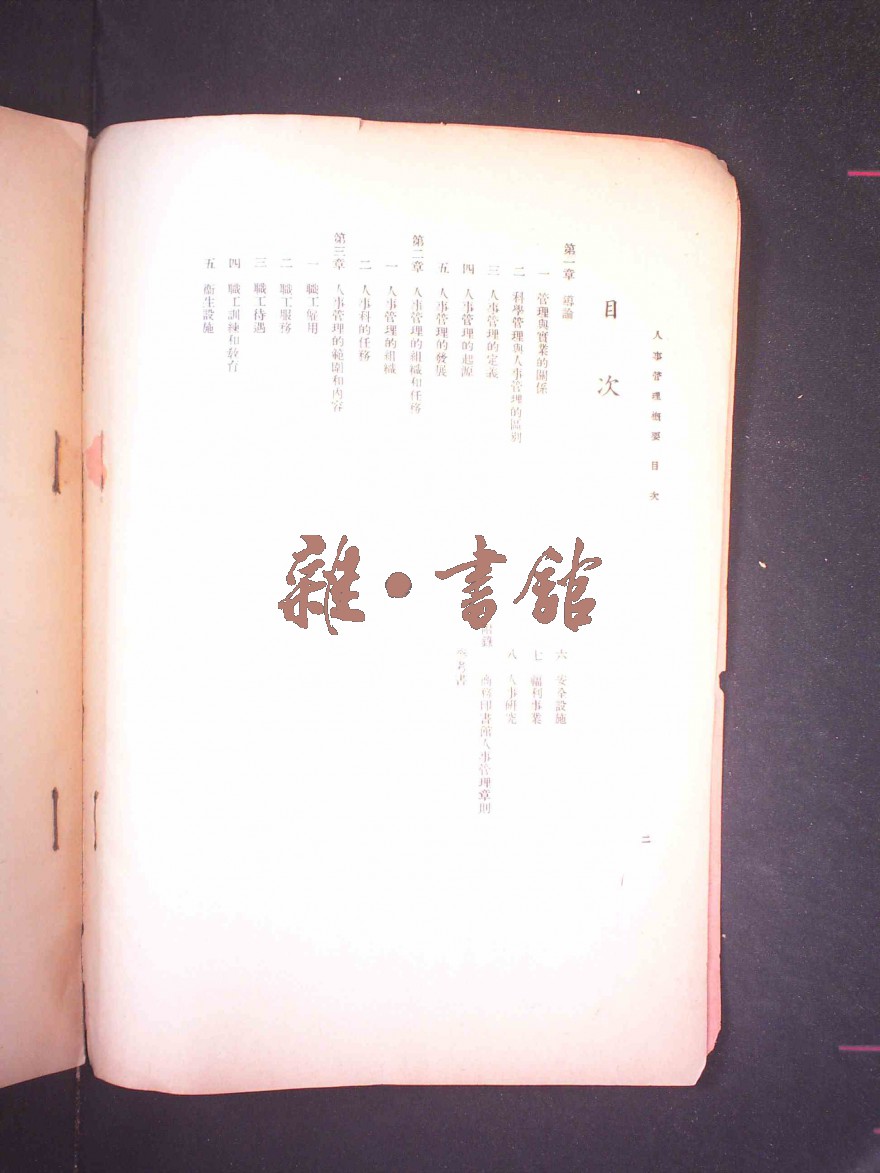 人事管理概要 目次
二
目次
第一章 導論
一 管理與實業的關係
二 科學管理與人事管理的區別
三 人事管理的定義
四 人事管理的起源
五 人事管理的發展
第二章 人事管理的組織和任務
一 人事管理的組織
二 人事科的任務
第三章 人事管理的範圍和內容
一 職工僱用
二 職工服務
三 職工待遇
四 職工訓練和教育
五 衞生設施
六 安全設施
七 福利事業
八 人事研究
附錄 商務印書館人事管理章則
參考書
雜·書館